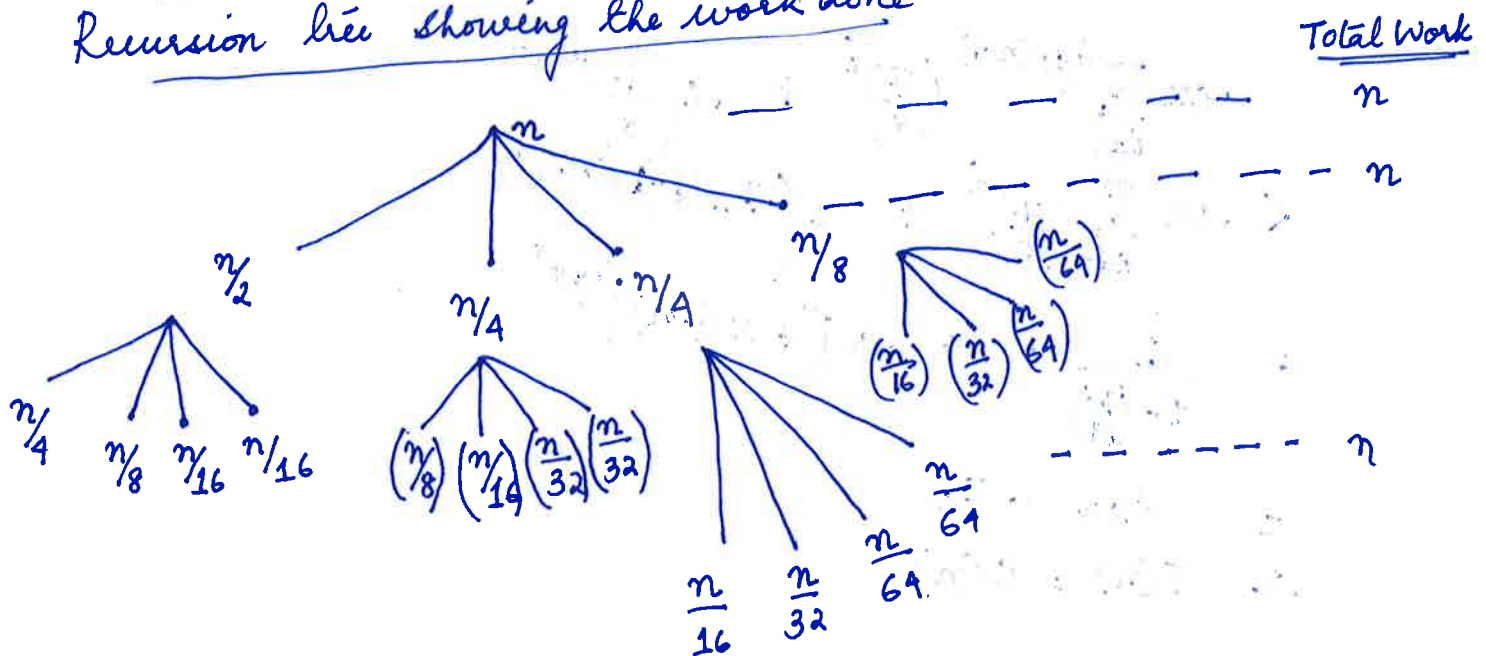 Recursion tree showing the work done
Total Work
n
n
n
n/2
n/4
n/4
n/8
(n/64)
(n/16) (n/32) (n/64)
n/4
n/8 n/16 n/16
(n/8) (n/16) (n/32) (n/32)
n
n/16
n/32
n/64.
n/64